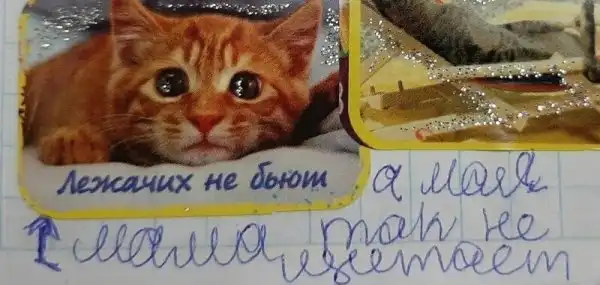 Лежачих не бьют
а моя
мама так не
щетаем